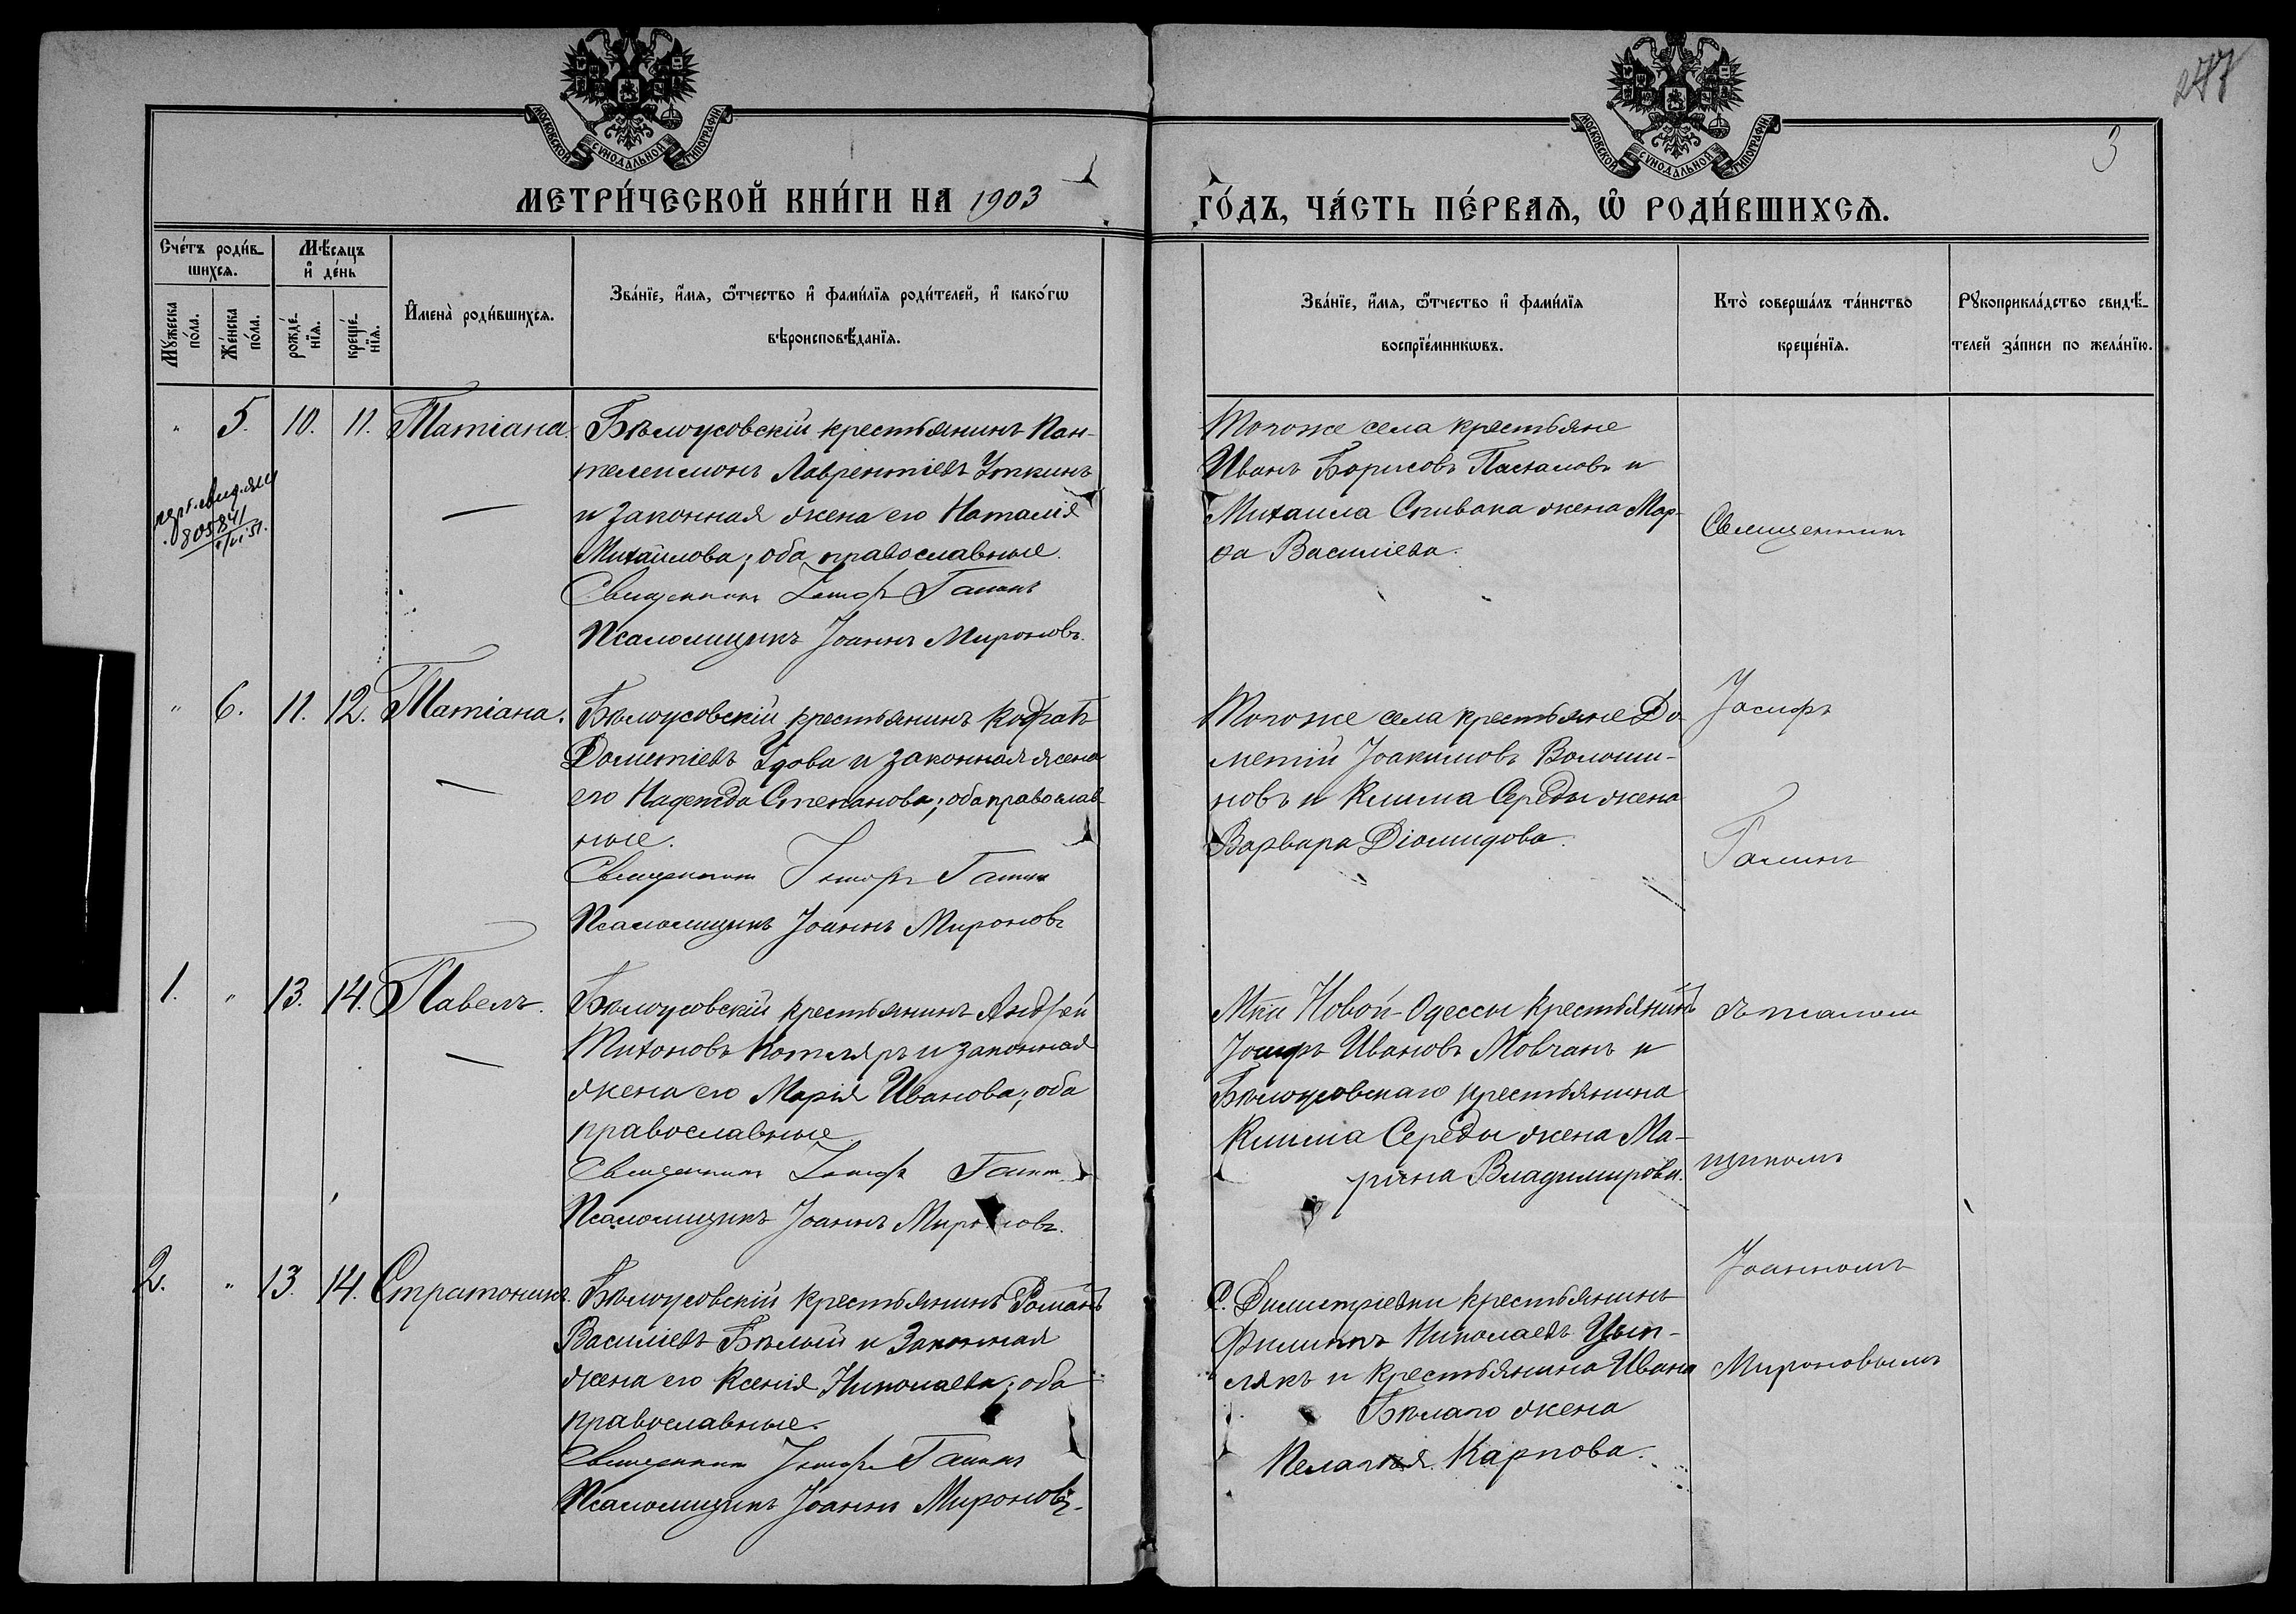 277
3
МОСКОВСКОЙ СѴНОДАЛЬНОЙ ТИПОГРАФІИ
МОСКОВСКОЙ СѴНОДАЛЬНОЙ ТИПОГРАФІИ
МЕТРИ́ЧЕСКОЙ КНИ́ГИ НА 1903
ГО́ДЪ, ЧА́СТЬ ПЕ́РВАѦ, Ѽ РОДИ́ВШИХСѦ.
Сче́тъ роди́в-
шихсѧ.
Мѣ́сѧцъ
и҆ де́нь
Мꙋ́жеска
по́ла.
Же́нска
по́ла.
рожде́-
нїѧ.
креще́-
нїѧ.
И҆мена̀ роди́вшихсѧ.
Зва́нїе, и҆́мѧ, ѻ҆́тчество и҆ фами́лїѧ роди́телей, и҆ како́гѡ
вѣроисповѣ́данїѧ.
Зва́нїе, и҆́мѧ, ѻ҆́тчество и҆ фами́лїѧ
воспрїе́мникѡвъ.
Кто̀ соверша́лъ та́инство
креще́нїѧ.
Рꙋкоприкла́дство свидѣ́-
телей за́писи по жела́нїю.
" 5. 10. 11. Татіана. Бѣлоусовскій крестьянинъ Пан-
телеимонъ Лаврентіевъ Уткинъ
и законная жена его Наталія
Михайлова; оба православные.
Священникъ Іосифъ Галинъ
Псаломщикъ Іоаннъ Мироновъ.
Тогоже села крестьяне
Иванъ Борисовъ Паскаловъ и
Михаила Спивака жена Мар-
ѳа Василіева.
Священникъ
805841
" 6. 11. 12. Татіана. Бѣлоусовскій крестьянинъ Кодратъ
Дометіевъ Удова и законная жена
его Надежда Степанова; оба православ-
ные.
Священникъ Іосифъ Галинъ
Псаломщикъ Іоаннъ Мироновъ
Тогоже села крестьяне До-
метій Іоакимовъ Волоши-
новъ и Клима Середы жена
Варвара Діомидова.
Іосифъ
Галинъ
1. " 13. 14. Павелъ. Бѣлоусовскій крестьянинъ Андрей
Тихоновъ Котляръ и законная
жена его Марія Иванова; оба
православные.
Священникъ Іосифъ Галинъ
Псаломщикъ Іоаннъ Мироновъ.
М-ка Новой-Одессы крестьянинъ
Іосифъ Ивановъ Мовчанъ и
Бѣлоусовскаго крестьянина
Клима Середы жена Ма-
рина Владимирова.
съ псалом
щикомъ
2. " 13. 14. Стратоникъ. Бѣлоусовскій крестьянинъ Романъ
Василіевъ Бѣлый и законная
жена его Ксенія Николаева; оба
православные.
Священникъ Іосифъ Галинъ
Псаломщикъ Іоаннъ Мироновъ.
С. Димитріевки крестьянинъ
Филиппъ Николаевъ Цып-
лякъ и крестьянина Ивана
Бѣлаго жена
Пелагія Карпова.
Іоанномъ
Мироновымъ